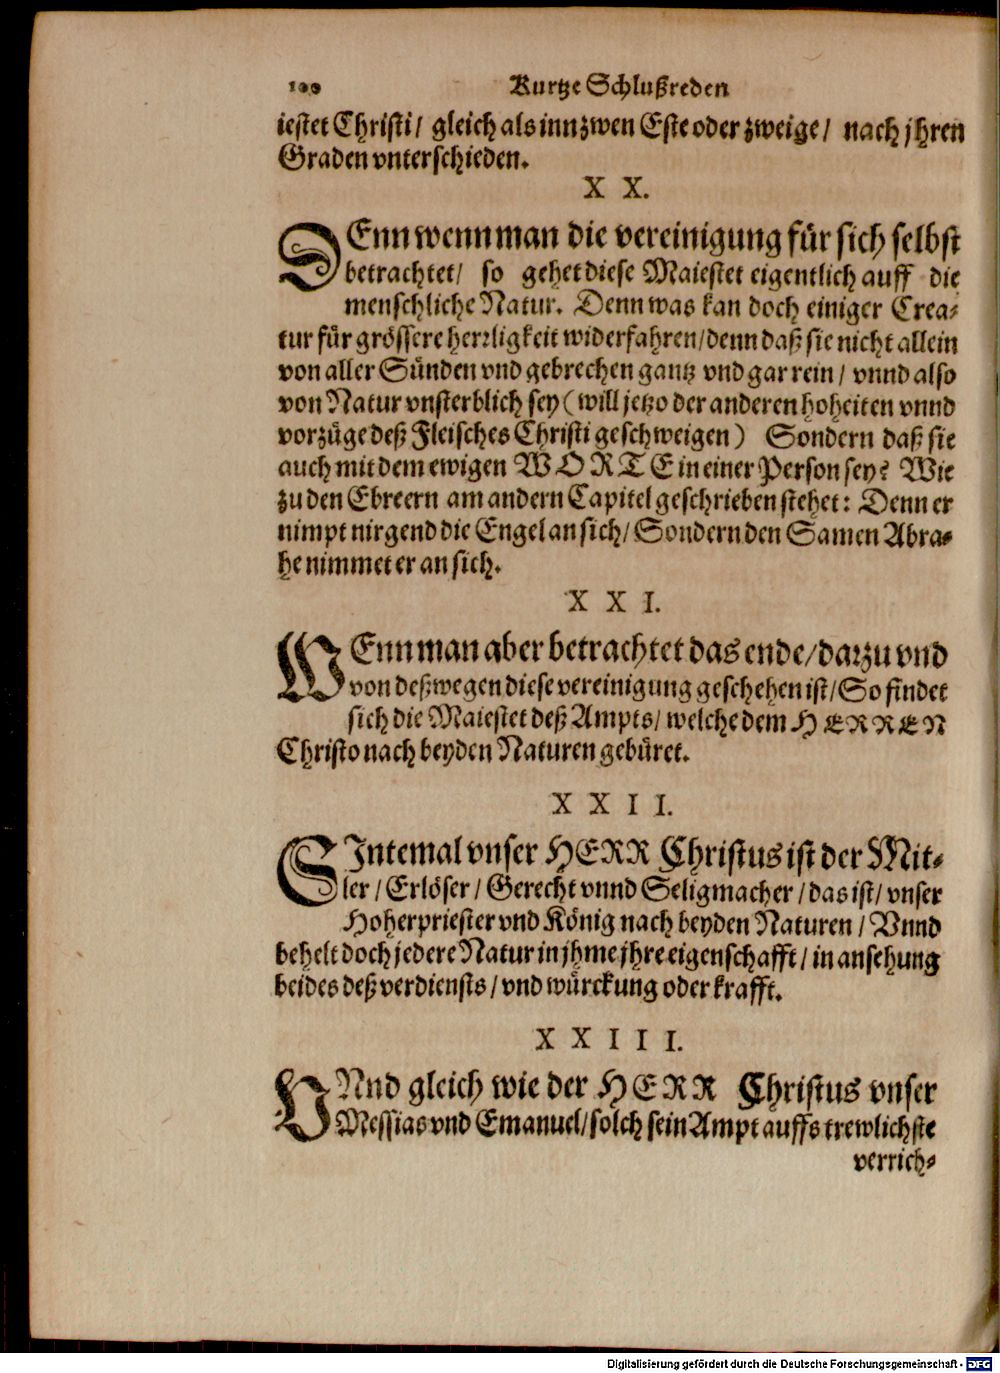 100 Kurtze Schlußreden
iestet Christi/ gleich als inn zwen Este oder zweige/ nach jhren
Graden vnterschieden.
XX.
DEnn wenn man die vereinigung für sich selbst
betrachtet/ so gehet diese Maiestet eigentlich auff die
menschliche Natur. Denn was kan doch einiger Crea-
tur für grössere herrligkeit widerfahren/ denn daß sie nicht allein
von aller Sünden vnd gebrechen gantz vnd gar rein/ vnnd also
von Natur vnsterblich sey (will jetzo der anderen hoheiten vnnd
vorzüge deß Fleisches Christi geschweigen) Sondern daß sie
auch mit dem ewigen WORTE in einer Person sey? Wie
zu den Ebreern am andern Capitel geschrieben stehet: Denn er
nimpt nirgend die Engel an sich/ Sondern den Samen Abra-
he nimmet er an sich.
XXI.
WEnn man aber betrachtet das ende/ darzu vnd
von deßwegen diese vereinigung geschehen ist/ So findet
sich die Maiestet deß Ampts/ welche dem HERREN
Christo nach beyden Naturen gebüret.
XXII.
SIntemal vnser HERR Christus ist der Mit-
ler/ Erlöser/ Gerecht vnnd Seligmacher/ das ist/ vnser
Hoherpriester vnd König nach beyden Naturen/ Vnnd
behelt doch jedere Natur in jhme jhre eigenschafft/ in ansehung
beides deß verdiensts/ vnd würckung oder krafft.
XXIII.
VNnd gleich wie der HERR Christus vnser
Messias vnd Emanuel/ solch sein Ampt auffs trewlichste
verrich-
Digitalisierung gefördert durch die Deutsche Forschungsgemeinschaft - DFG